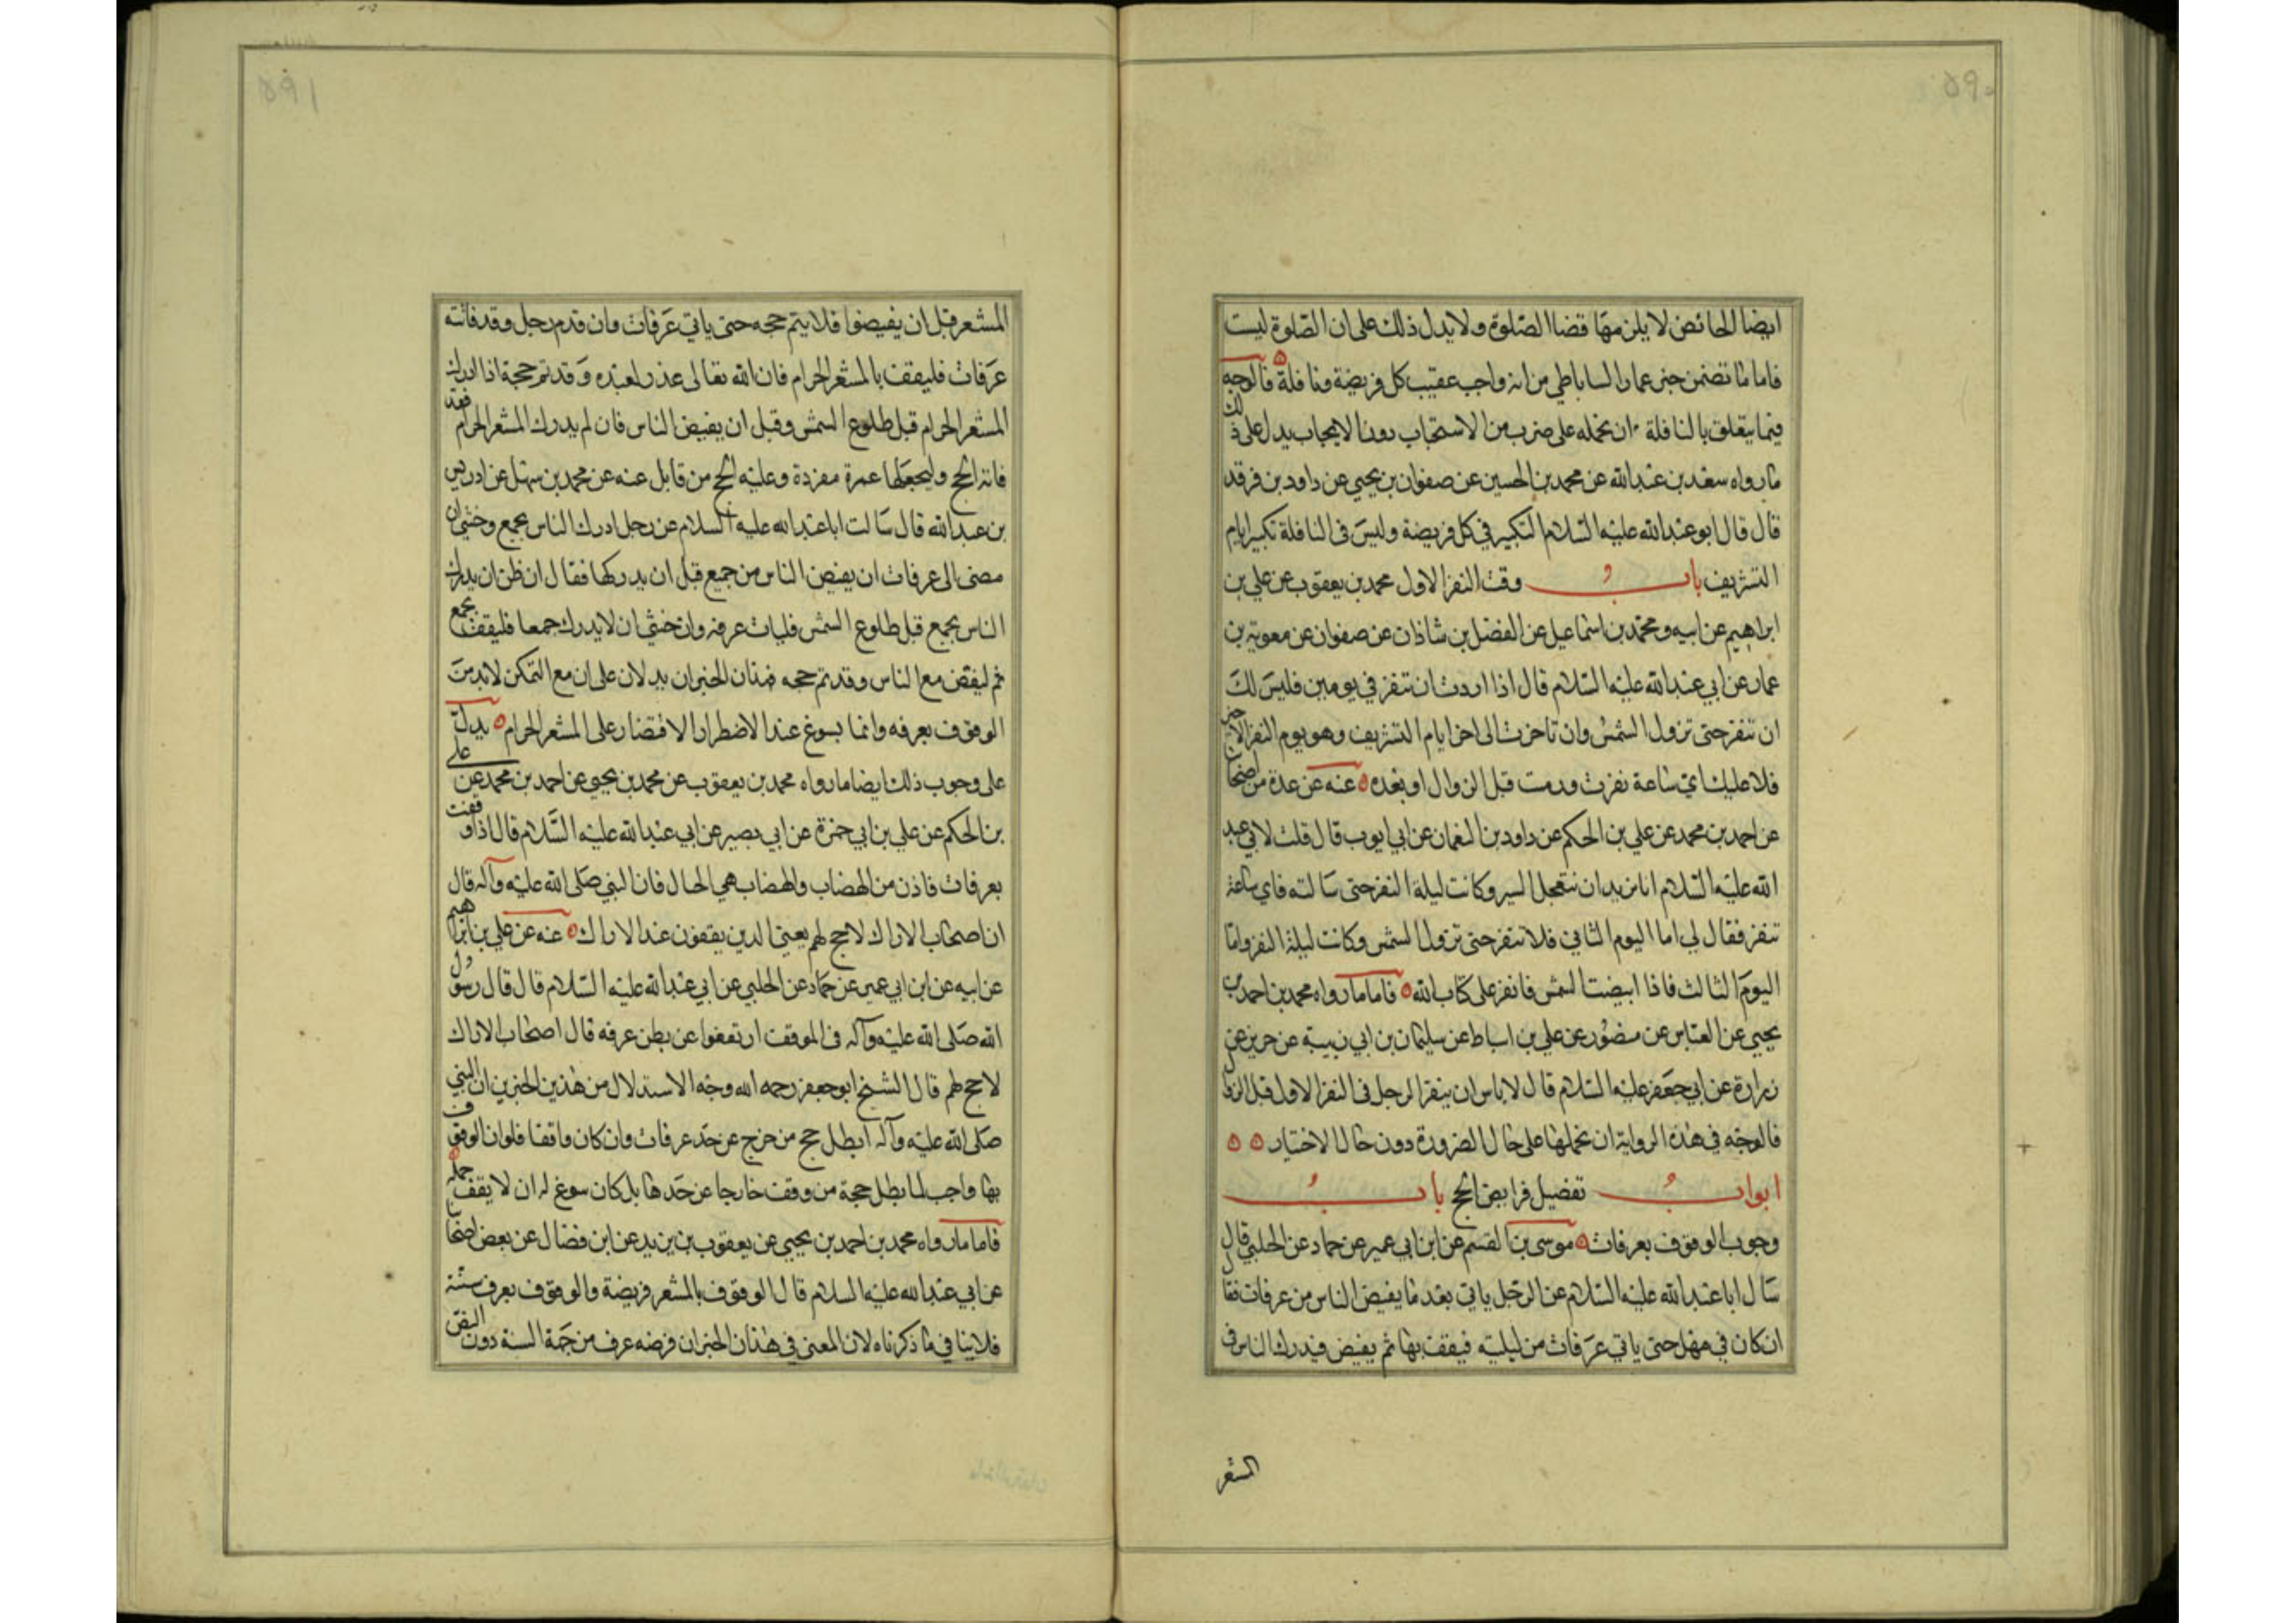 ۵۹۰
ايضا الحائض لا يلزمها قضا الصلوة ولا يدل ذلك على ان الصلوة ليست
فاما ما تضمن خبر عمار الساباطي من انه واجب عقيب كل فريضة ونافلة فالوجه
فيما يتعلق بالنافلة ان نحمله على ضرب من الاستحباب دون الايجاب يدل على ذلك
ما رواه سعد بن عبد الله عن محمد بن الحسين عن صفوان بن يحيى عن داود بن فرقد
قال قال ابو عبد الله عليه السلام التكبير في كل فريضة وليس في النافلة تكبير ايام
التشريق باب وقت النفر الاول محمد بن يعقوب عن علي بن
ابراهيم عن ابيه ومحمد بن اسماعيل عن الفضل بن شاذان عن صفوان عن معوية بن
عمار عن ابي عبد الله عليه السلام قال اذا اردت ان تنفر في يومين فليس لك
ان تنفر حتى تزول الشمس وان تاخرت الى اخر ايام التشريق وهو يوم النفر الاخير
فلا عليك اي ساعة نفرت ورميت قبل الزوال او بعده عنه عن عدة من اصحابنا
عن احمد بن محمد عن علي بن الحكم عن داود بن النعمان عن ابي ايوب قال قلت لابي عبد
الله عليه السلام انا نريد ان نتعجل السير وكانت ليلة النفر حتى سالته فاي ساعة
تنفر فقال لي اما اليوم الثاني فلا تنفر حتى تزول الشمس وكانت ليلة النفر واما
اليوم الثالث فاذا ابيضت الشمس فانفر على كتاب الله فاما ما رواه محمد بن احمد بن
يحيى عن العباس عن منصور عن علي بن اسباط عن سليمان بن ابي زينبة عن حريز عن
زرارة عن ابي جعفر عليه السلام قال لا باس ان ينفر الرجل في النفر الاول قبل الزوال
فالوجه في هذه الرواية ان نحملها على حال الضرورة دون حال الاختيار
ابواب تفصيل فرايض الحج باب
وجوب الوقوف بعرفات موسى بن القسم عن ابن ابي عمير عن حماد عن الحلبي قال
سال ابا عبد الله عليه السلام عن الرجل ياتي بعد ما يفيض الناس من عرفات فقال
ان كان في مهل حتى ياتي عرفات من ليلته فيقف بها ثم يفيض فيدرك الناس في
المشعر
۵۹۱
المشعر قبل ان يفيضوا فلا يتم حجه حتى ياتي عرفات وان قدم رجل وقد فاتته
عرفات فليقف بالمشعر الحرام فان الله تعالى عذر لعبده وقد تم حجه اذا ادرك
المشعر الحرام قبل طلوع الشمس وقبل ان يفيض الناس فان لم يدرك المشعر الحرام فقد
فاته الحج وليجعلها عمرة مفردة وعليه الحج من قابل عنه عن محمد بن سهل عن ادريس
بن عبد الله قال سالت ابا عبد الله عليه السلام عن رجل ادرك الناس بجمع وخشي ان
مضى الى عرفات ان يفيض الناس من جميع قبل ان يدركها فقال ان ظن ان يدرك
الناس بجمع قبل طلوع الشمس فليات عرفه وان خشي ان لا يدرك جمعا فليقف بجمع
ثم ليفض مع الناس وقد تم حجه فهذان الخبران يدلان على ان مع التمكن لابد من
الوقوف بعرفه وانما يسوغ عند الاضطرار الاقتصار على المشعر الحرام يدل
على وجوب ذلك ايضا ما رواه محمد بن يعقوب عن محمد بن يحيى عن احمد بن محمد عن علي
بن الحكم عن علي بن ابي حمزة عن ابي بصير عن ابي عبد الله عليه السلام قال اذا وقفت
بعرفات فادن من الهضاب والهضاب هي الجبال فان النبي صلى الله عليه وآله قال
ان اصحاب الاراك لا حج لهم يعني الذين يقفون عند الاراك عنه عن علي بن ابراهيم
عن ابيه عن ابن ابي عمير عن حماد عن الحلبي عن ابي عبد الله عليه السلام قال قال رسول
الله صلى الله عليه وآله في الموقف ارتفعوا عن بطن عرفه قال اصحاب الاراك
لا حج لهم قال الشيخ ابو جعفر رحمه الله وجه الاستدلال من هذين الخبرين ان النبي
صلى الله عليه وآله ابطل حج من خرج عن حد عرفات وان كان واقفا فلو ان الوقوف
بها واجب لما بطل حجة من وقف خارجا عن حدها بل كان سوغ له ان لا يقف جملة
فاما ما رواه محمد بن احمد بن يحيى عن يعقوب بن يزيد عن ابن فضال عن بعض اصحابنا
عن ابي عبد الله عليه السلام قال الوقوف بالمشعر فريضة والوقوف بعرفه سنة
فلا ينافي ما ذكرناه لان المعنى في هذان الخبران فرضه عرف من جهة السنة دون